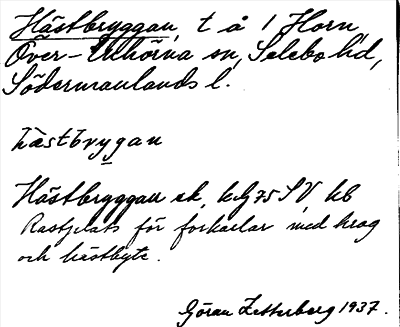 Hästbryggan, t å 1 Horn,
Över-Enhörna sn, Selebo hd,
Södermanlands l.
hästbrygan
Hästbryggan ek, kbl 75 SV kb
Rastplats för forkarlar med krog
och hästbyte.
Göran Zetterberg 1937.